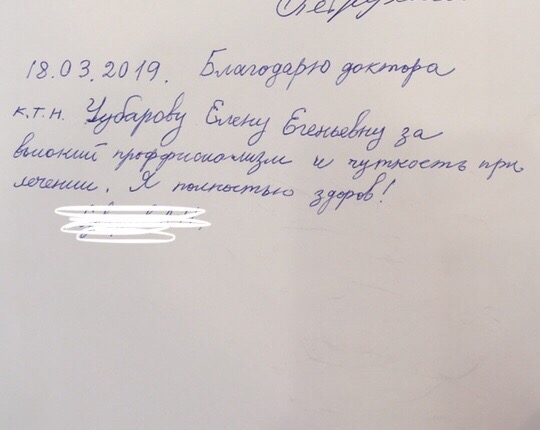 18.03.2019. Благодарю доктора
к.т.н. Чубарову Елену Егеньевну за
высокий проффисионализм и чуткость при
лечении. Я полностью здоров!